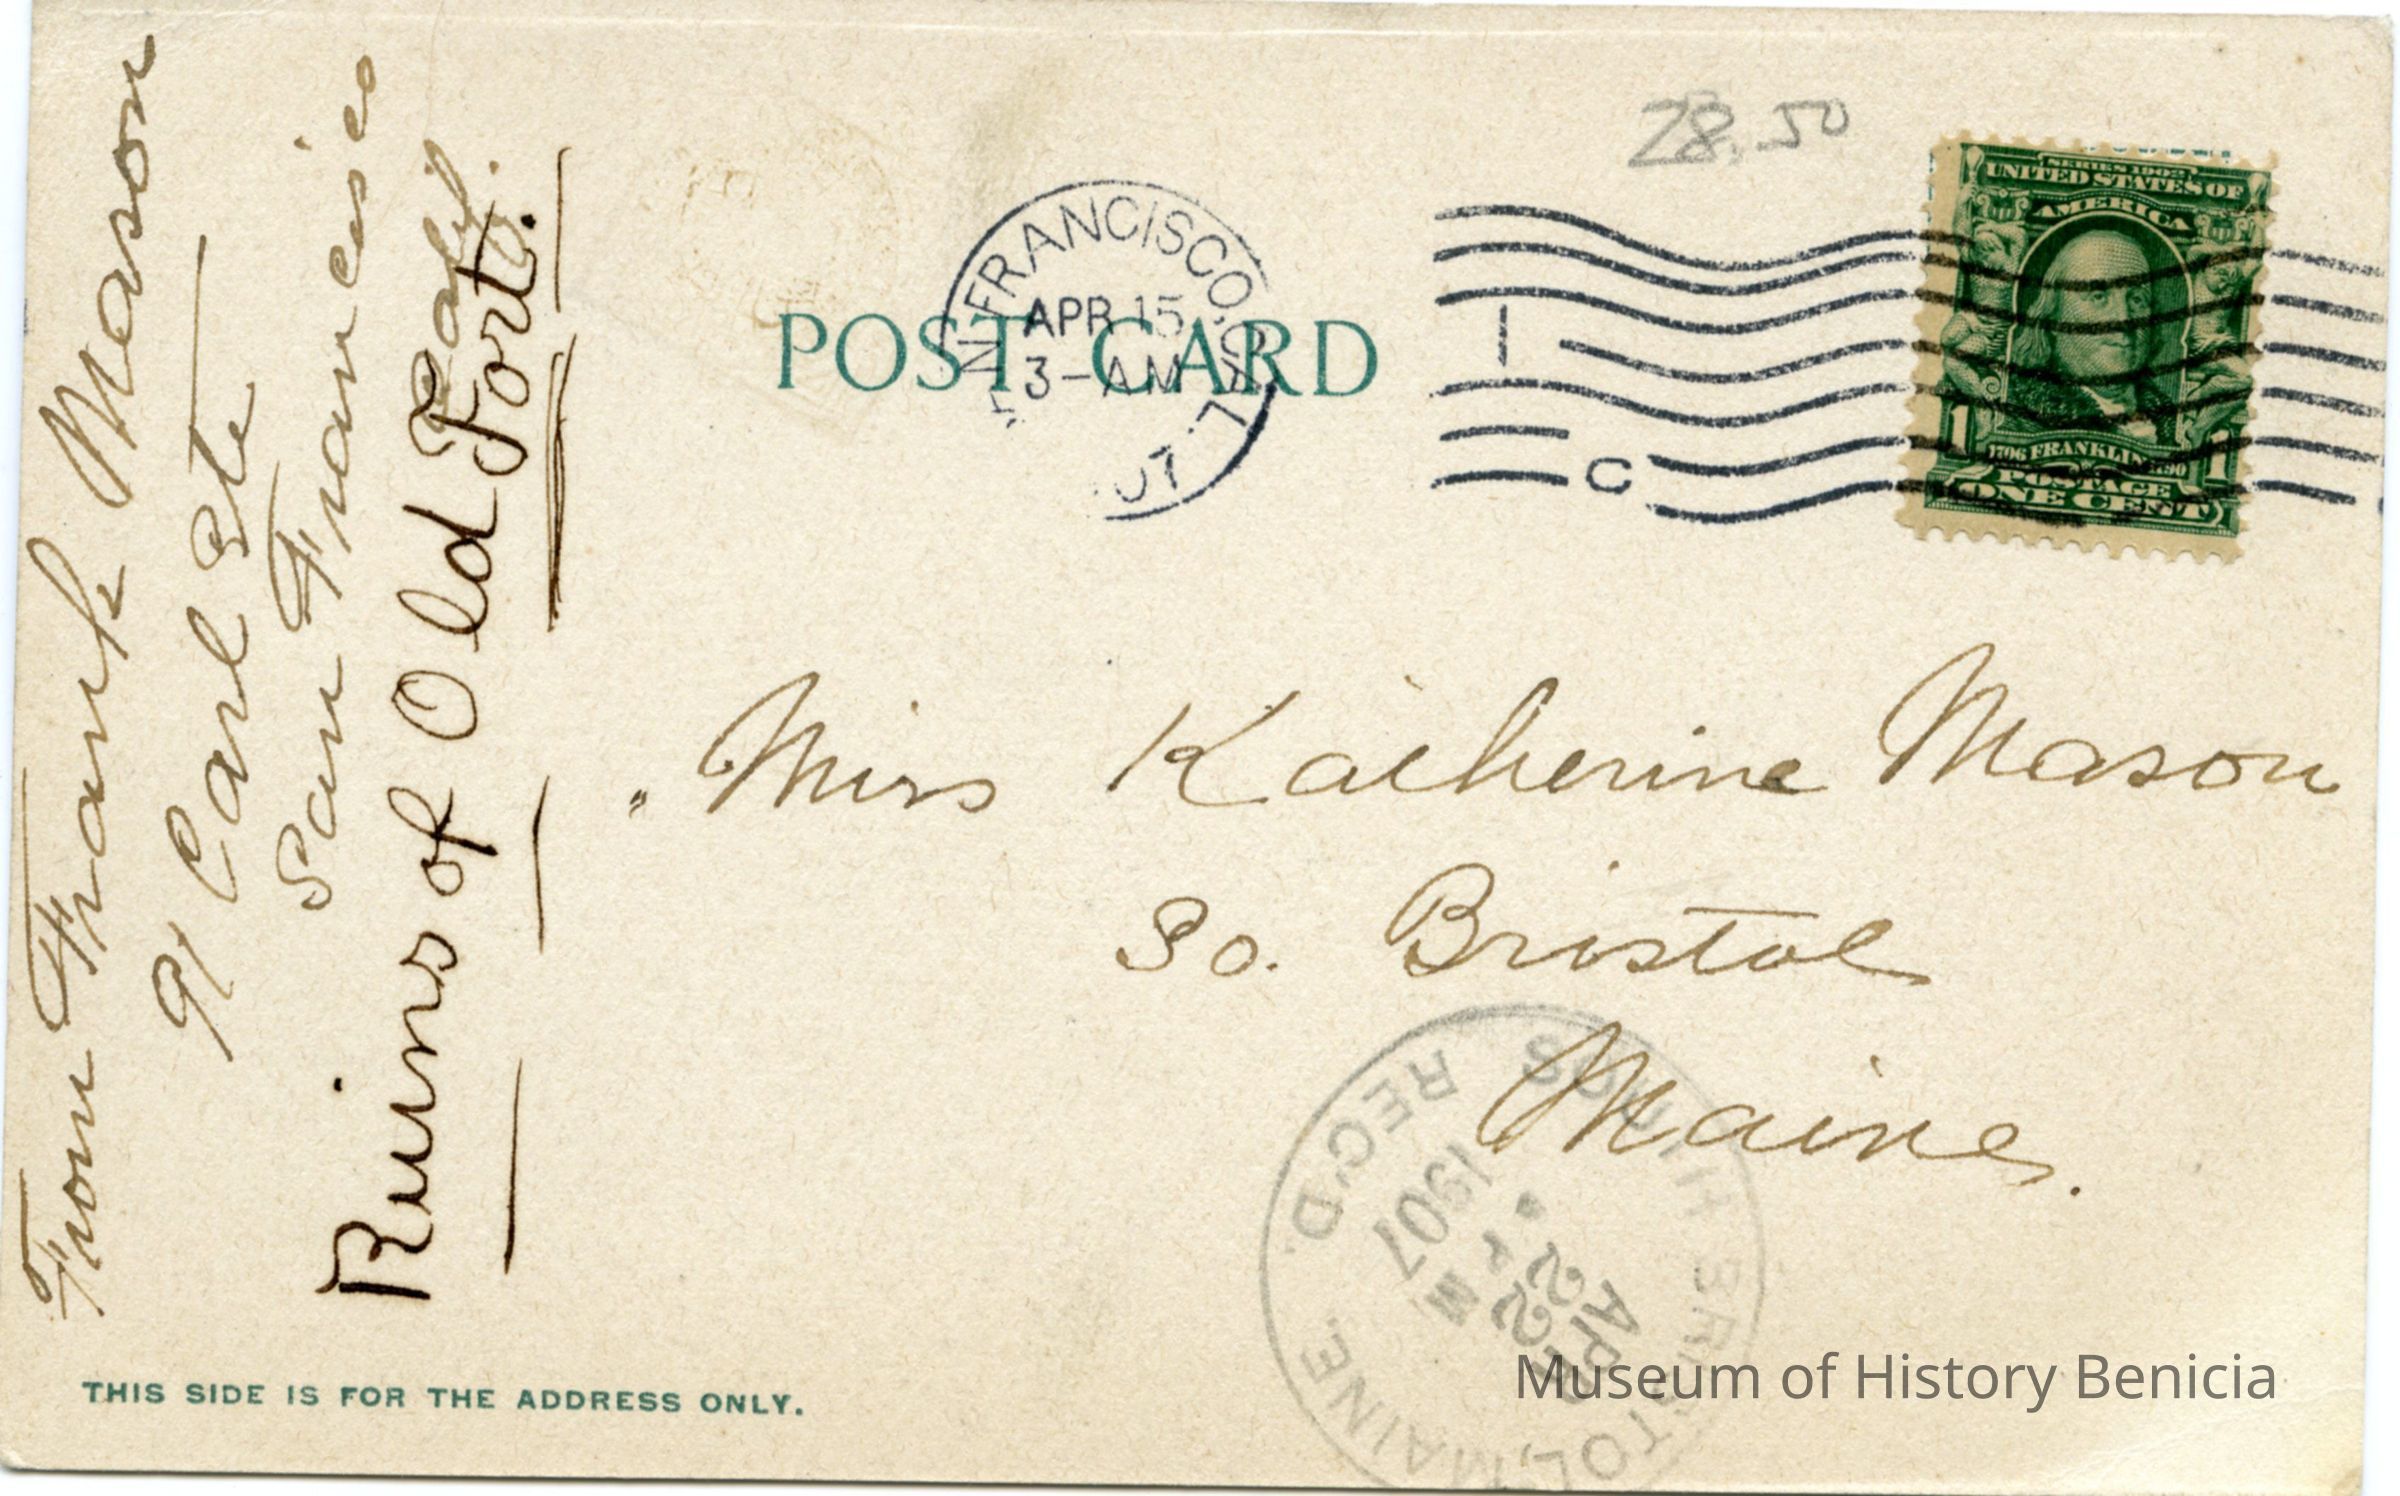 From Frank Mason
91 Carl Ste
San Francisco
Calif.
Ruins of Old Fort.
28.50
FRANCISCO, CAL.
APR 15
3-AM
07
POST CARD
1
C
SERIES 1902
UNITED STATES OF
AMERICA
1 1
1706 FRANKLIN 1790
POSTAGE
ONE CENT
Miss Katherine Mason
So. Bristol
Maine.
SOUTH BRISTOL, MAINE.
REC'D.
APR
22
1907
THIS SIDE IS FOR THE ADDRESS ONLY.
Museum of History Benicia